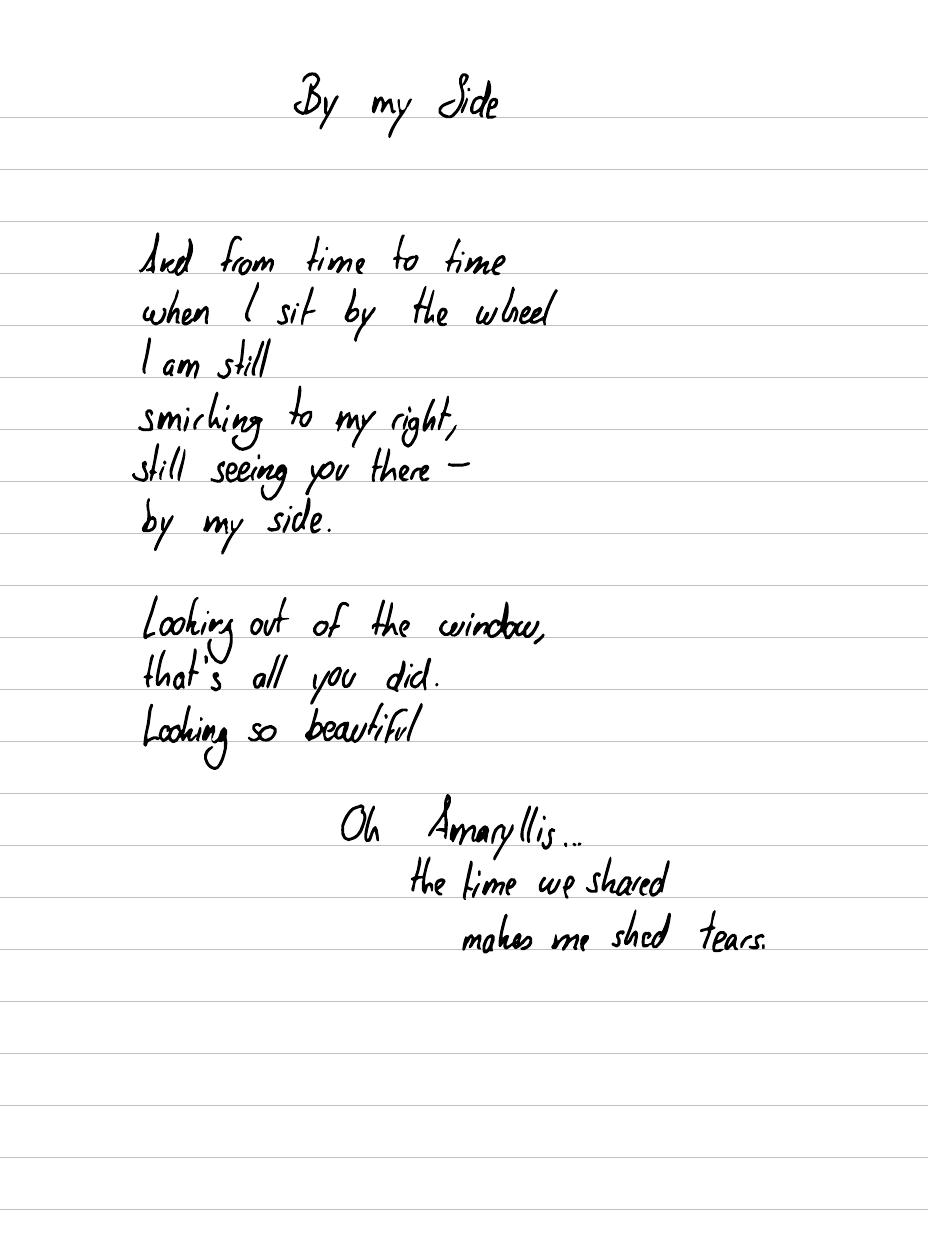 By my Side
And from time to time
when I sit by the wheel
I am still
smirking to my right,
still seeing you there –
by my side.
Looking out of the window,
that's all you did.
Looking so beautiful
Oh Amaryllis...
the time we shared
makes me shed tears.